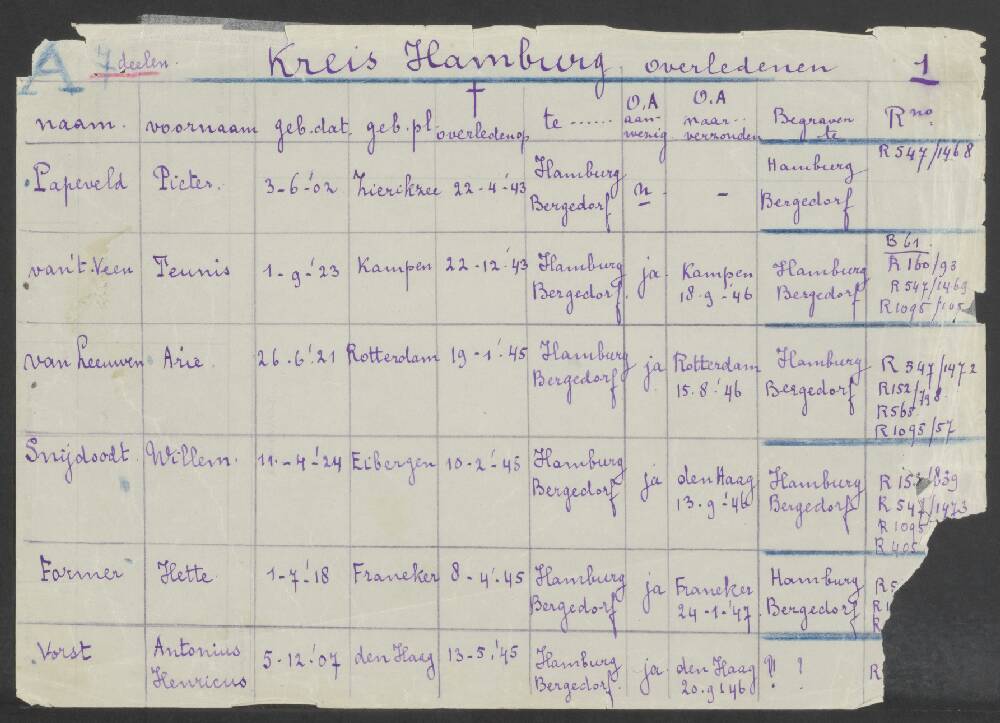 A 7 deelen. Kreis Hamburg, overledenen 1
naam. voornaam geb.dat. geb.pl. † overleden op te ...... O.A aan-wezig O.A naar.. verzonden Begraven te R no.
Papeveld Pieter. 3-6-'02 Zierikzee 22-4-'43 Hamburg Bergedorf n - Hamburg Bergedorf R 547/1468
van't Veen Teunis 1-9-'23 Kampen 22-12-'43 Hamburg Bergedorf. ja. Kampen 18-9-'46 Hamburg Bergedorf B 61. R 160/93 R 547/1469 R 1095/105
van Leeuwen Arie. 26-6-'21 Rotterdam 19-1-'45 Hamburg Bergedorf ja Rotterdam 15.8-'46 Hamburg Bergedorf R 547/1472 R 152/798 R 565 R 1095/57
Snijdoodt Willem. 11-4-'24 Eibergen 10-2-'45 Hamburg Bergedorf ja den Haag 13-9-'46 Hamburg Bergedorf R 839 R 547/1473 R 1095 R 405
Former Hette. 1-7-'18 Franeker 8-4-'45 Hamburg Bergedorf ja Franeker 24-1-'47 Hamburg Bergedorf R 5 R 1 R
Vorst Antonius Henricus 5-12-'07 den Haag 13-5-'45 Hamburg Bergedorf. ja. den Haag 20-9-'46 ? ? R